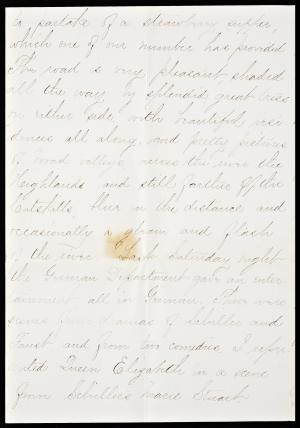 to partake of a strawberry supper,
which one of our number has provided
The road is very pleasant shaded
all the way by splendid great trees
on either side, with beautiful resi
dences all along, and pretty
of broad valleys across the river the
Heighlands and still farther off the
Catskills, blue in the distance and
occasionally a gleam and flash
of the river. Last Saturday night
the German Department gave an enter
ainment all in German. There were
scenes from dramas of Schiller and
Faust and from two comedies. I repres
ented Queen Elizabeth in a scene
from Schiller's Marie Stuart.